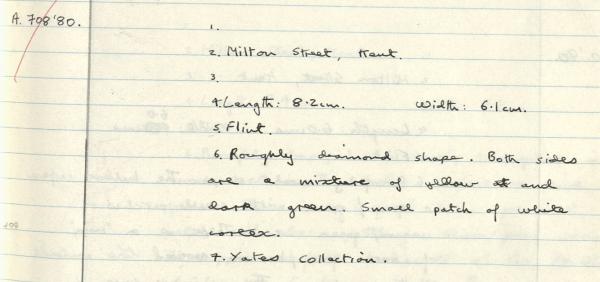 A. 708'80.
1.
2. Milton Street, Kent.
3.
4. Length: 8.2cm. Width: 6.1cm.
5. Flint.
6. Roughly diamond shape. Both sides
are a mixture of yellow and
dark green. Small patch of white
cortex.
7. Yates Collection.